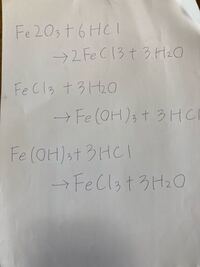 Fe2O3+6HCl
→2FeCl3+3H2O
FeCl3+3H2O
→Fe(OH)3+3HCl
Fe(OH)3+3HCl
→FeCl3+3H2O